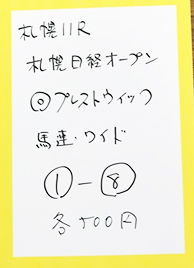 札幌11R
札幌日経オープン
◎プレストウィック
馬連・ワイド
①-⑧
各500円